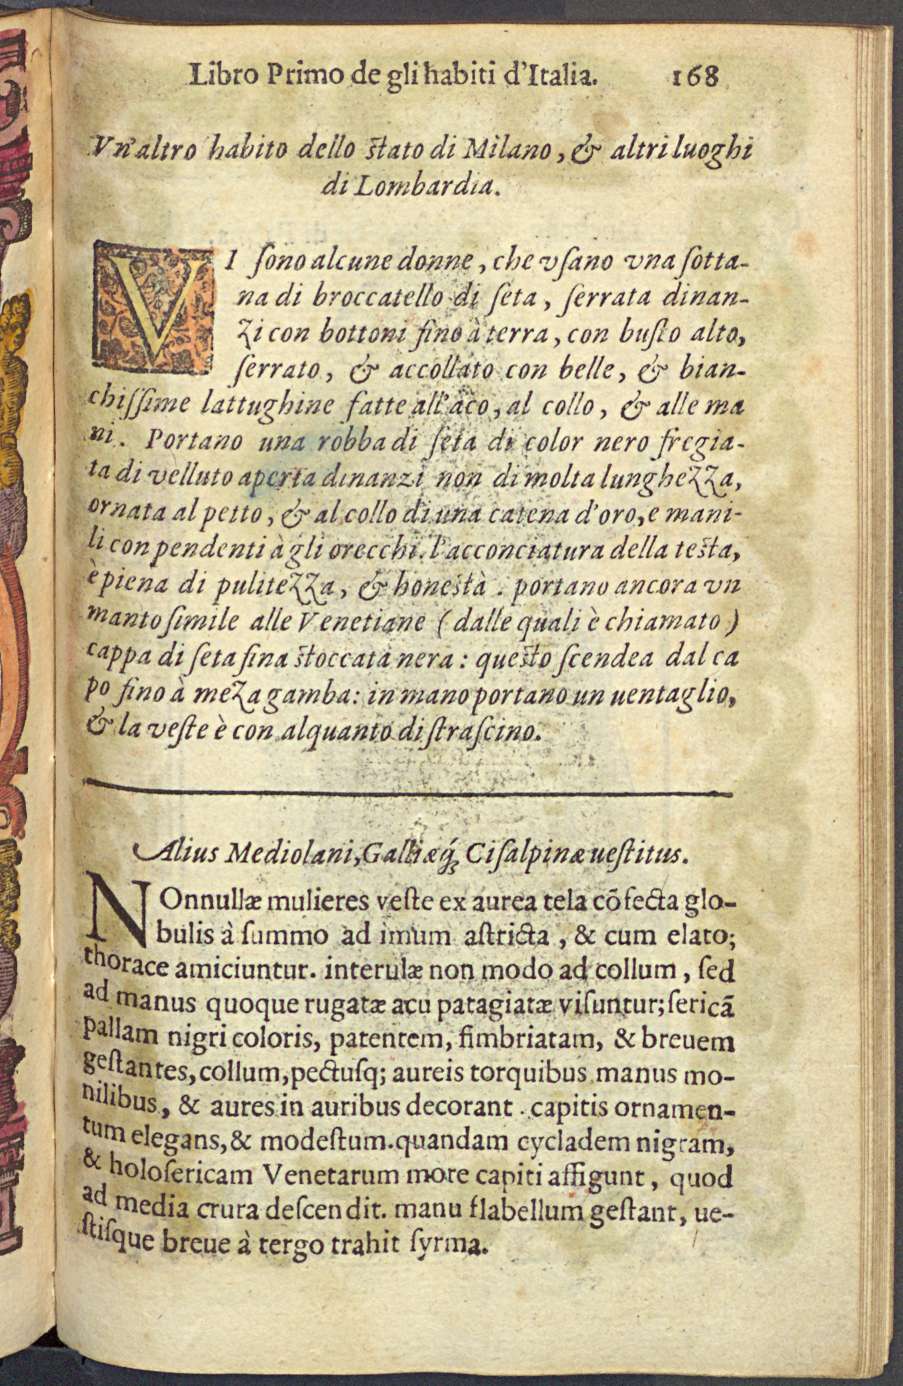 Libro Primo de gli habiti d'Italia. 168
Vn'altro habito dello ſtato di Milano, & altri luoghi
di Lombardia.
VI ſono alcune donne, che vſano vna ſotta-
na di broccatello di ſeta, ſerrata dinan-
zi con bottoni fino à terra, con buſto alto,
ſerrato, & accollato con belle, & bian-
chiſſime lattughine fatte all'aco, al collo, & alle ma
ni. Portano una robba di ſeta di color nero fregia-
ta di velluto aperta dinanzi non di molta lunghezza,
ornata al petto, & al collo di una catena d'oro, e mani-
li con pendenti à gli orecchi. l'acconciatura della teſta,
è piena di pulitezza, & honeſtà. portano ancora vn
manto ſimile alle Venetiane (dalle quali è chiamato)
cappa di ſeta fina ſtoccata nera: queſto ſcende a dal ca
po fino à meza gamba: in mano portano un uentaglio,
& la veſte è con alquanto di ſtraſcino.
Alius Mediolani, Galliæq́; Ciſalpinæ ueſtitus.
NOnnullæ mulieres veſte ex aurea tela cõfecta glo-
bulis à ſummo ad imum aſtricta, & cum elato;
thorace amiciuntur. interulæ non modo ad collum, ſed
ad manus quoque rugatæ acu patagiatæ viſuntur; ſericã
pallam nigri coloris, patentem, fimbriatam, & breuem
geſtantes, collum, pectuſq; aureis torquibus manus mo-
nilibus, & aures in auribus decorant. capitis ornamen-
tum elegans, & modeſtum. quandam cycladem nigram,
& holoſericam Venetarum more capiti affigunt, quod
ad media crura deſcendit. manu flabellum geſtant, ue-
ſtiſque breue à tergo trahit ſyrma.